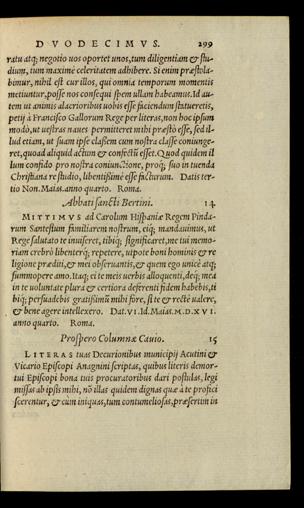 DVODECIMVS. 299
ratu atq; negotio uos oportet unos, tum diligentiam & stu-
dium, tum maxime celeritatem adhibere. Si enim præstola-
bimur, nihil est cur illos, qui omnia temporum momentis
metiuntur, posse nos consequi spem ullam habeamus. Id au-
tem ut animis alacrioribus uobis esse faciendum statueretis,
petij à Francisco Gallorum Rege per literas, non hoc ipsum
modò, ut uestras naues permitteret mihi præstò esse, sed il-
lud etiam, ut suam ipse classem cum nostra classe coniunge-
ret, quo ad aliquid actum & confectũ esset. Quod quidem il
lum confido pro nostra coniunctione, proq; suo in tuenda
Christiana re studio, libentissimè esse facturum. Datis ter-
tio Non. Maias. anno quarto. Roma.
Abbati sancti Bertini. 14
MITTIMVS ad Carolum Hispaniæ Regem Pinda-
rum Santestium familiarem nostrum, eiq; mandauimus, ut
Rege salutato te inuiseret, tibiq; significaret, me tui memo-
riam crebrò libenterq; repetere, uipote boni hominis & re
ligione præditi, & mei obseruantis, & quem ego unicè atq;
summopere amo. Itaq; ei te meis uerbis alloquenti, deq; mea
in te uoluntate plura & certiora deferenti fidem habebis, ti
biq; persuadebis gratissimũ mihi fore, si te & rectè ualere,
& bene agere intellexero. Dat. VI. Id. Maias. M.D.XVI.
anno quarto. Roma.
Prospero Columnæ Cauio. 15
LITERAS tuas Decurionibus municipij Acutini &
Vicario Episcopi Anagnini scriptas, quibus literis demor-
tui Episcopi bona tuis procuratoribus dari postulas, legi
missas ab ipsis mihi, nõ illas quidem dignas quæ à te profici
scerentur, & cùm iniquas, tum contumeliosas, præsertim in